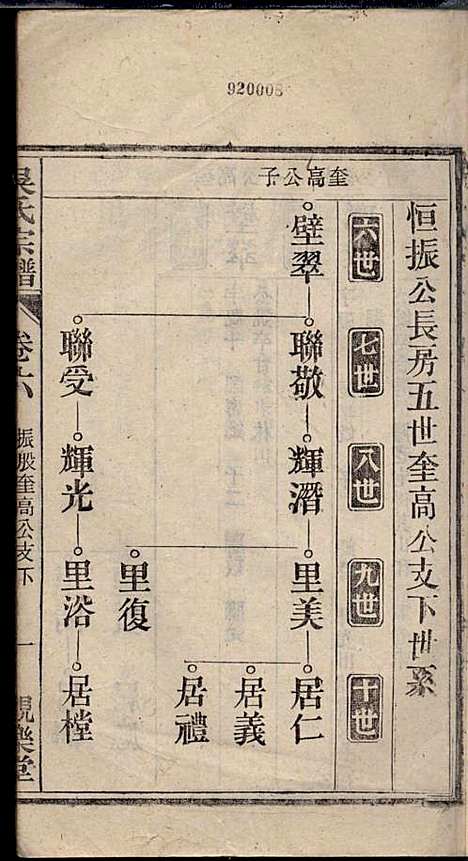 920008
恒振公長房五世奎高公支下世系
奎高公子
六世
七世
八世
九世
十世
璧翠
聯敬
輝潛
里美
居仁
居義
居禮
里復
聯受
輝光
里浴
居樘
吳氏宗譜
卷六
振股奎高公支下
一
覯樂堂